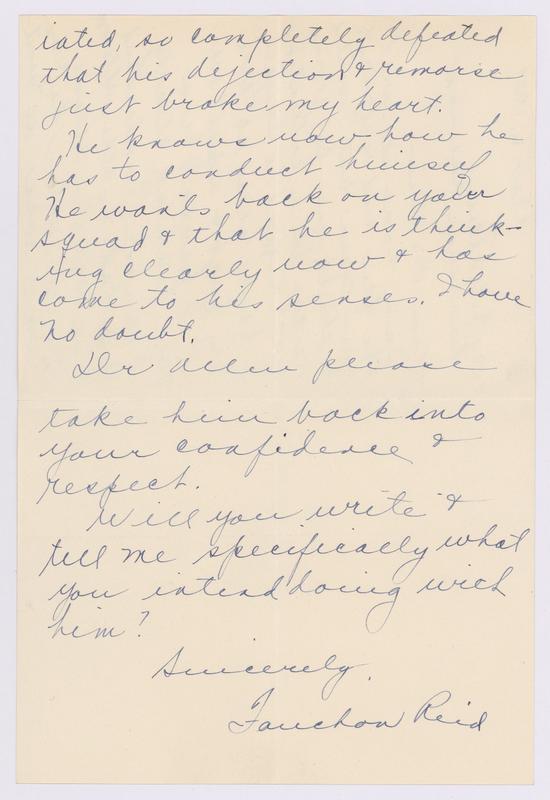 iated, so completely defeated
that his dejection & remorse
just broke my heart.
He knows now how he
has to conduct himself
He wants back on your
squad & that he is think-
ing clearly now & has
come to his senses. I have
no doubt.
Dr Allen please
take him back into
your confidence &
respect.
Will you write &
tell me specifically what
you intend doing with
him?
Sincerely,
Fanchon Reid